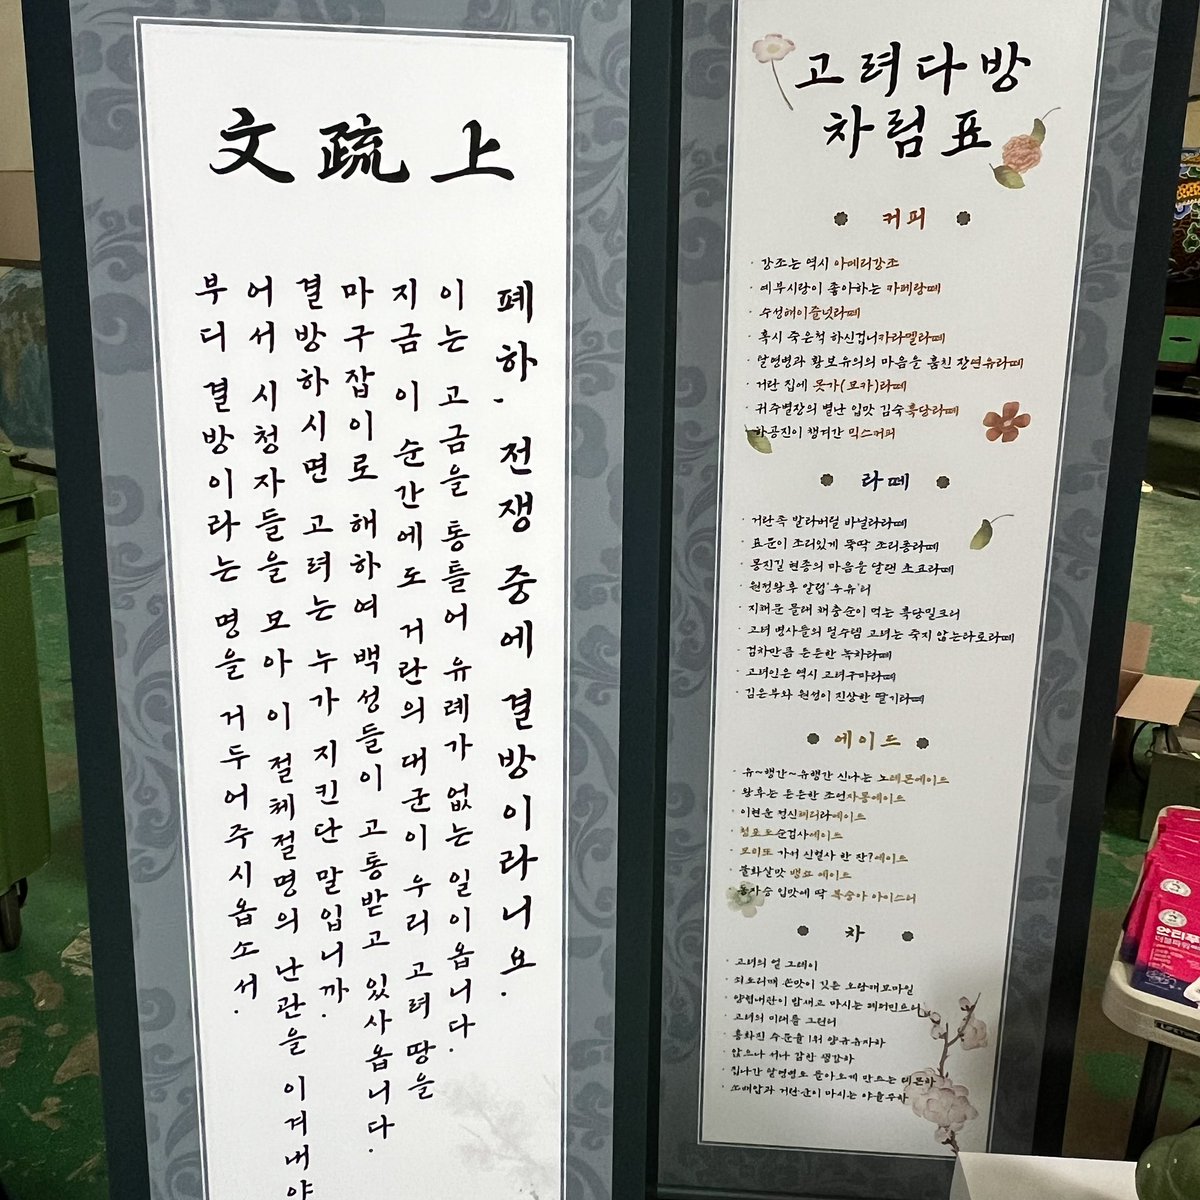 上疏文
폐하, 전쟁 중에 결방이라니요.
이는 고금을 통틀어 유례가 없는 일이옵니다.
지금 이 순간에도 거란의 대군이 우리 고려 땅을
마구잡이로 해하여 백성들이 고통받고 있사옵니다.
결방하시면 고려는 누가 지킨단 말입니까.
어서 시청자들을 모아 이 절체절명의 난관을 이겨내야
부디 결방이라는 명을 거두어주시옵소서.
고려다방
차림표
커피
· 강조는 역시 아메리강조
· 예부시랑이 좋아하는 카페랑떼
· 수성해이즐넛라떼
· 혹시 죽은척 하신겁니카라멜라떼
· 탈영병과 황보유의의 마음을 훔친 장연유라떼
· 거란 집에 못가(모카)라떼
· 귀주별장의 별난 입맛 김숙흥당라떼
· 하공진이 챙겨간 믹스커피
라떼
· 거란족 발라버릴 바닐라라떼
· 표문이 조리있게 뚝딱 조리퐁라떼
· 몽진길 현종의 마음을 달랜 초코라떼
· 원정왕후 알럽'우유'러
· 지채문 몰래 채충순이 먹는 흑당밀크티
· 고려 병사들의 필수템 고려는 죽지 않는타로라떼
· 검차만큼 든든한 녹차라떼
· 고려인은 역시 고려구마라떼
· 김은부와 원성이 진상한 딸기라떼
에이드
· 유~뱅간~유뱅간 신나는 노레몬에이드
· 왕후는 든든한 조언자몽에이드
· 이현운 정신체리라에이드
· 청포도순검사에이드
· 모히또 가서 신혈사 한 잔?에이드
· 불화살맛 뱅쇼 에이드
· 동아승 입맛에 딱 복숭아 아이스티
차
· 고려의 얼 그레이
· 쇠도리깨 쓴맛이 깃든 도랑깨모마일
· 양협내관이 밤새고 마시는 페퍼민트티
· 고려의 미래를 그린티
· 흥화진 수문율 1위 양규유자차
· 앉으나 서나 감찬 생강차
· 집나간 탈영병도 돌아오게 만드는 레몬차
· 소배압과 거란군이 마시는 야율무차